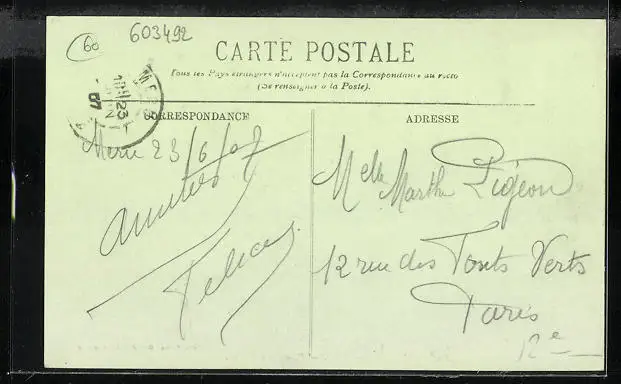 60
603492
CARTE POSTALE
Tous les Pays étrangers n'acceptent pas la Correspondance au recto
(Se renseigner à la Poste).
CORRESPONDANCE
ADRESSE
23
07
Méru 23/6/07
amitiés
Melle Marthe Pigeon
12 rue des Ponts Verts
Paris
12e